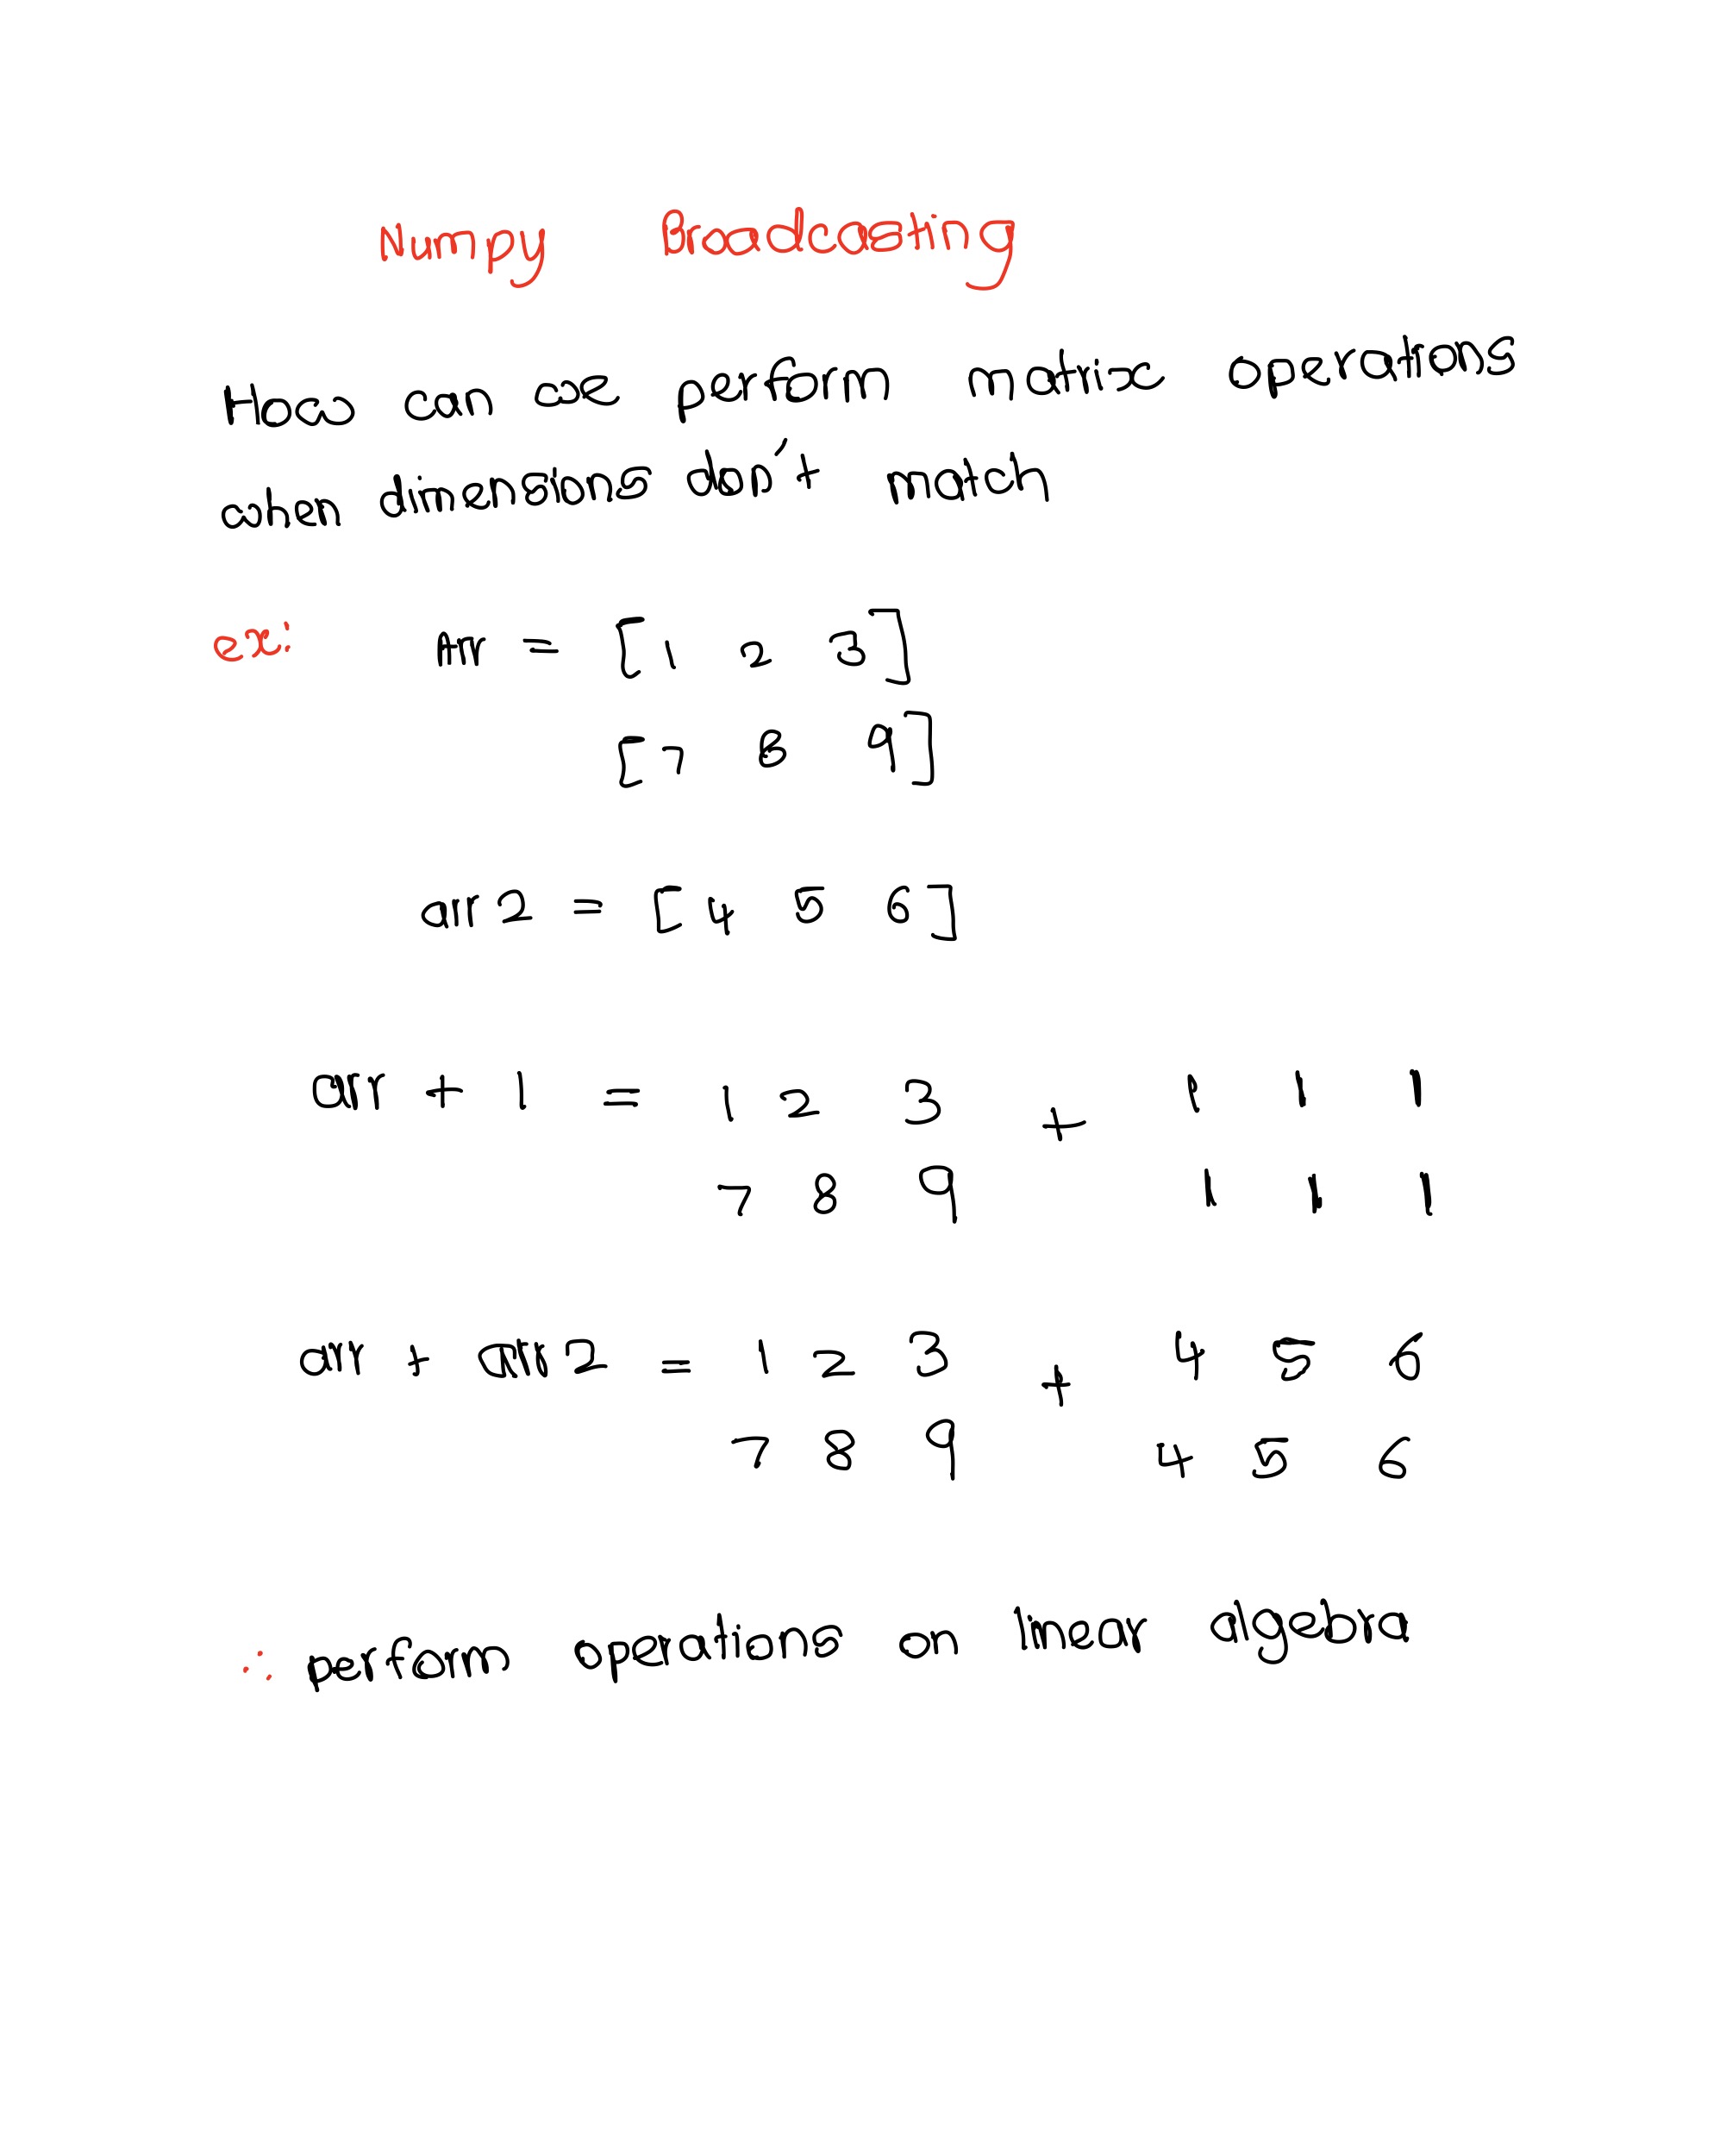 Numpy Broadcasting
How can we perform matrix operations
when dimensions don't match
ex: Arr = [1 2 3]
[7 8 9]
arr2 = [4 5 6]
arr + 1 = 1 2 3 + 1 1 1
7 8 9 1 1 1
arr + arr2 = 1 2 3 + 4 5 6
7 8 9 4 5 6
∴ perform operations on linear algebra